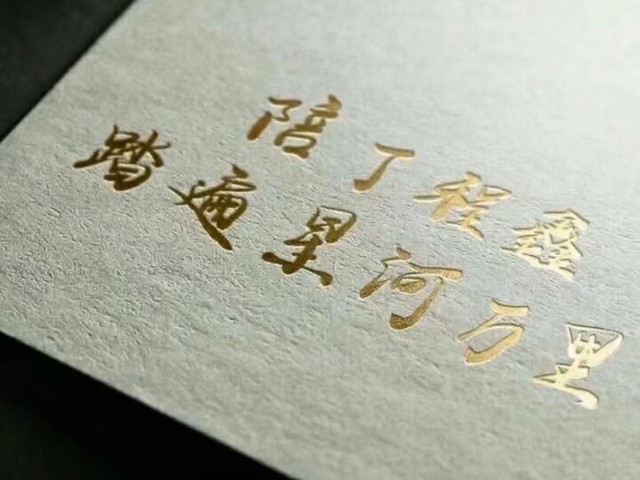 陪丁程鑫
踏遍星河万里